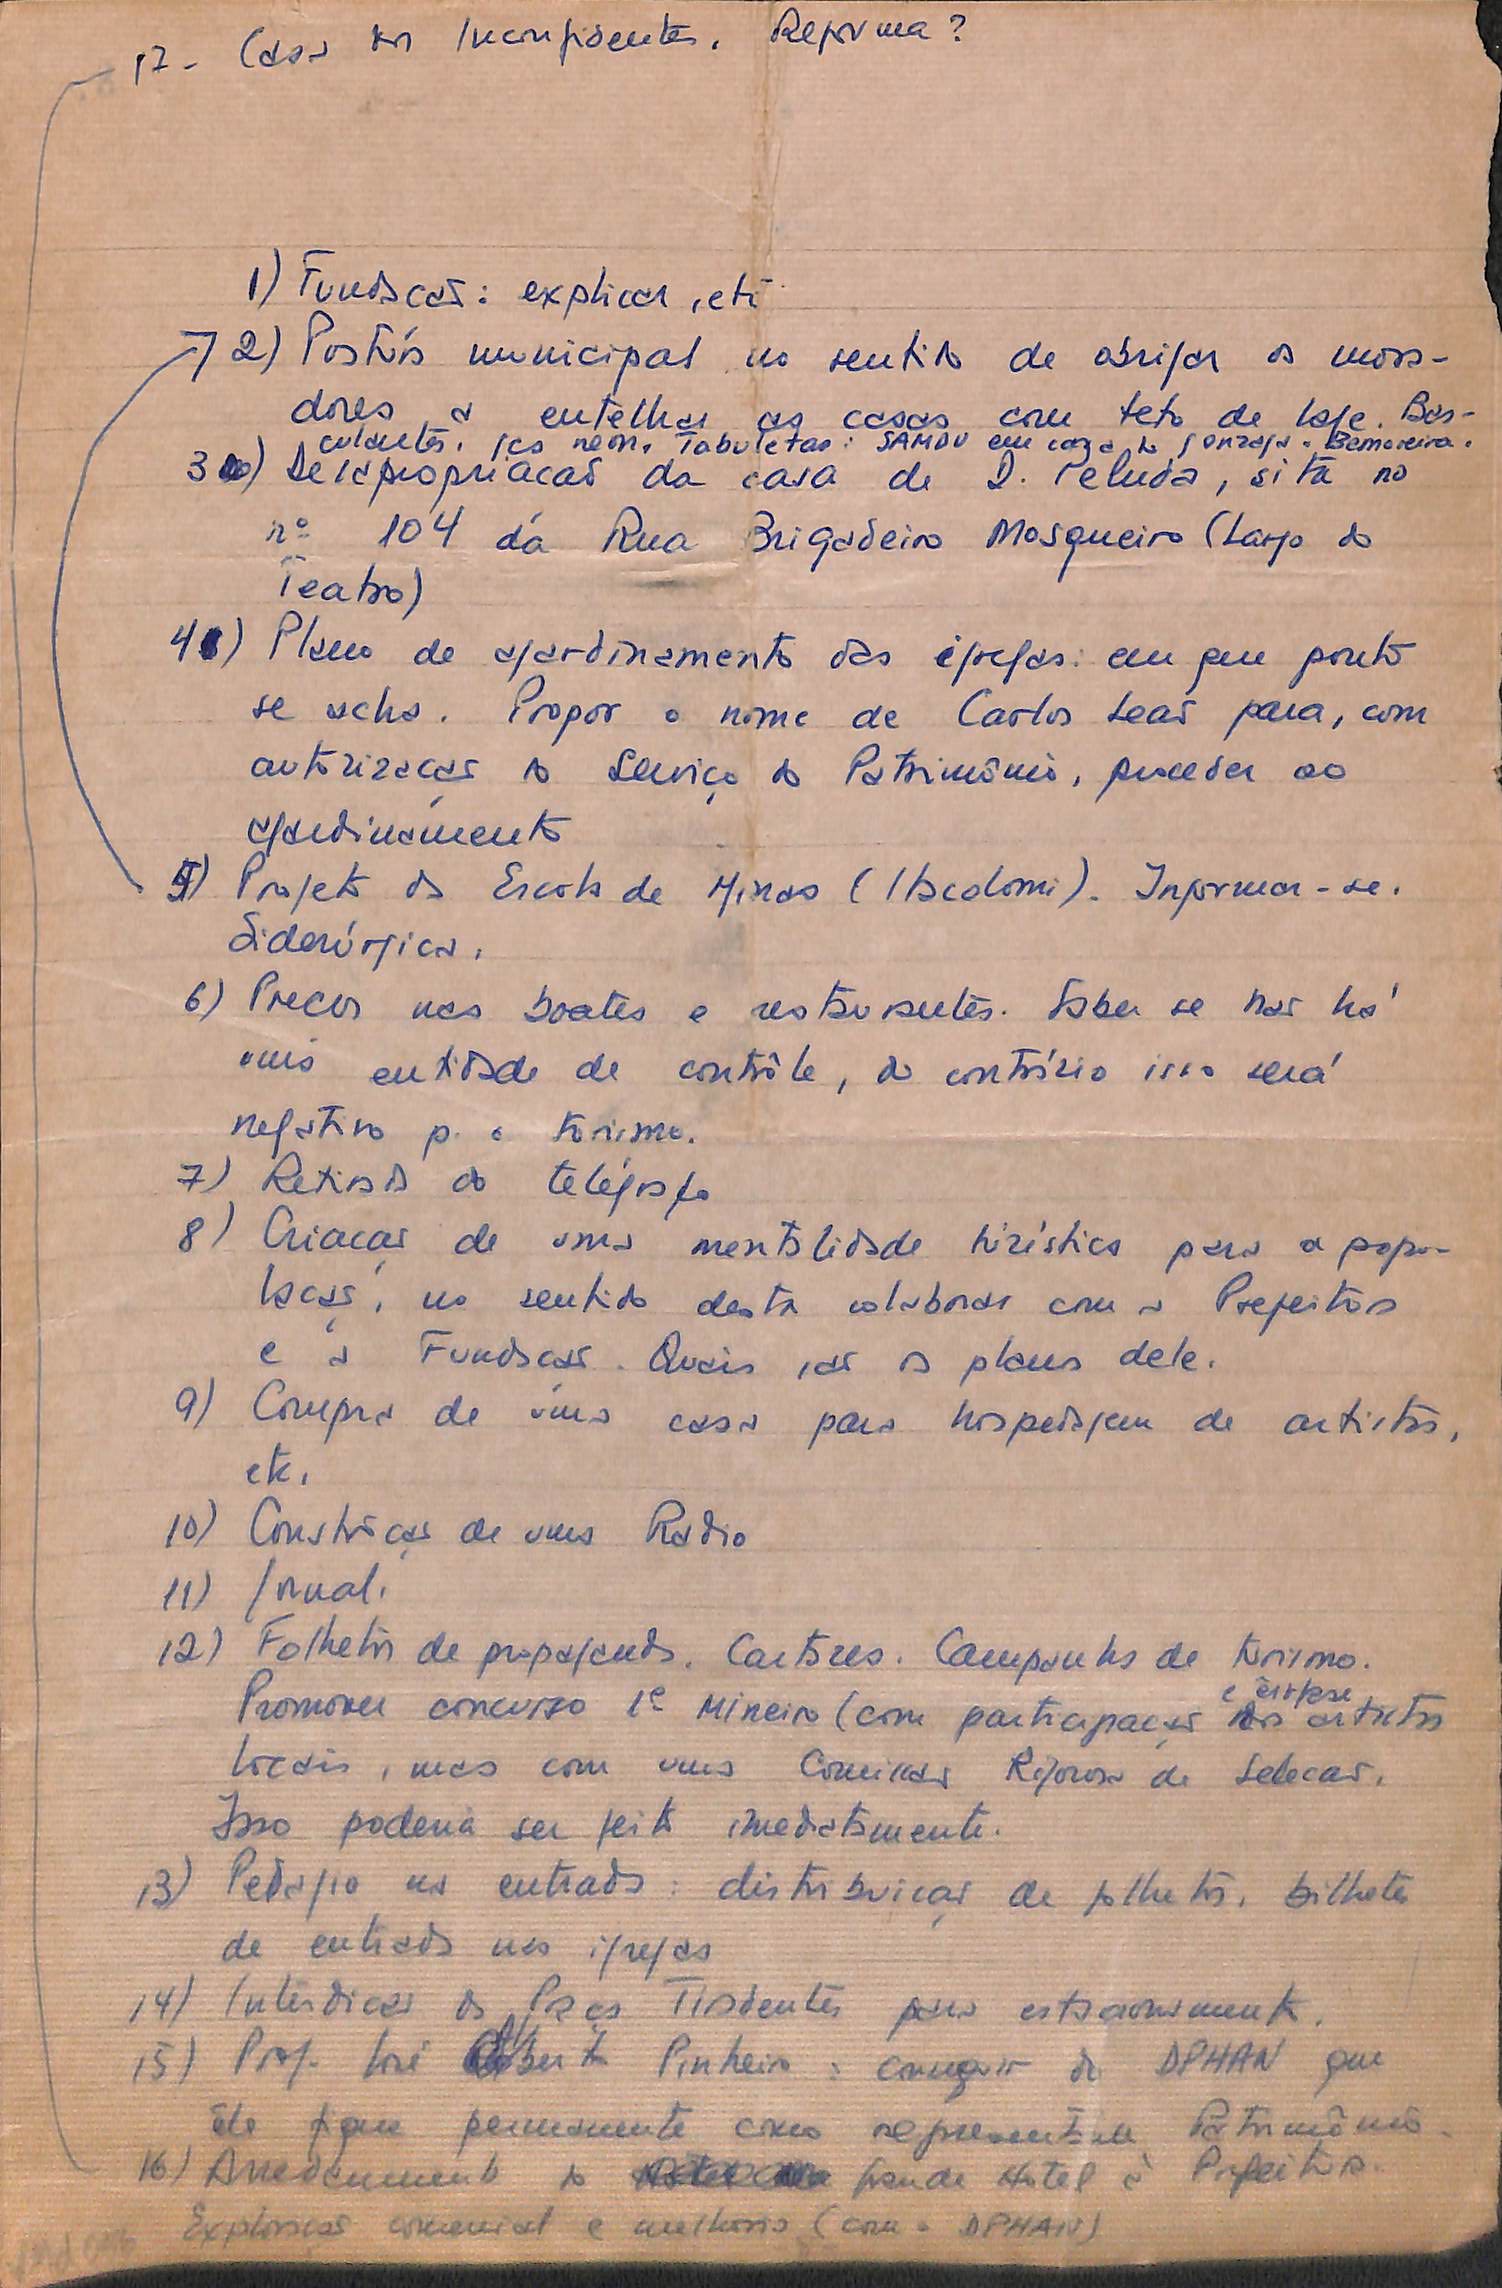 17 - Casa dos Inconfidentes. Reforma?
1) Fundação: explicar, etc
2) Postura municipal no sentido de obrigar os mora-
dores a entelhar as casas com teto de laje. Bas-
culantes. Gás neon. Tabuletas: SAMDU em casa do Gonzaga. Bemoreira.
3) Desapropriação da casa de D. Peluda, sita no
nº 104 da Rua Brigadeiro Mosqueiro (Largo do
Teatro)
4) Plano de ajardinamento das igrejas: em que ponto
se acha. Propor o nome de Carlos Leão para, com
autorização do Serviço do Patrimônio, proceder ao
ajardinamento
5) Projeto da Escola de Minas (Itacolomi). Informar-se.
Siderúrgica.
6) Preços nas boates e restaurantes. Saber se não há
uma entidade de contrôle, do contrário isso será
negativo p. o turismo.
7) Retirada do telégrafo
8) Criação de uma mentalidade turística para a popu-
lação, no sentido desta colaborar com a Prefeitura
e a Fundação. Quais são os planos dele.
9) Compra de uma casa para hospedagem de artistas,
etc.
10) Construção de uma Radio
11) Jornal.
12) Folhetos de propaganda. Cartazes. Campanha de turismo.
Promover concurso Le Mineiro (com participação dos artistas
locais, mas com uma Comissão Rigorosa de Seleção.
Isso poderia ser feito imediatamente.
13) Pedágio na entrada: distribuição de folhetos, bilhetes
de entrada nas igrejas
14) Interdição da Praça Tiradentes para estacionamento.
15) Prof. José Alberto Pinheiro: conseguir da DPHAN que
êle fique permanente como representante Patrimônio.
16) Arrendamento do Grande Hotel à Prefeitura.
Exploração comercial e melhoria (com a DPHAN)